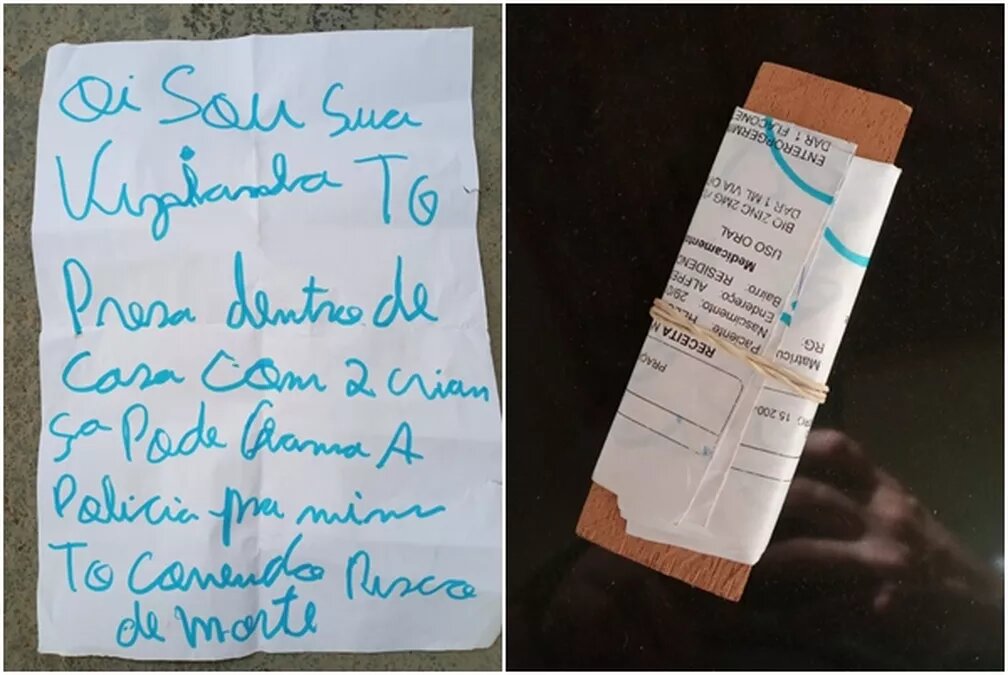 Oi Sou Sua
TO
Presa dentro de
Casa Com 2 crian
ça Pode Chama A
Policia pra mim
To Correndo Risco
de morte
15.200-
RECEITA
Paciente
Matricu
Nascimento: 29/
RG:
Endereço: ALFRE
Bairro: RESIDENC
Medicamento
USO ORAL
BIC ZINC 2MG/
DAR 1 ML VIA
DAR 1 FLACONE